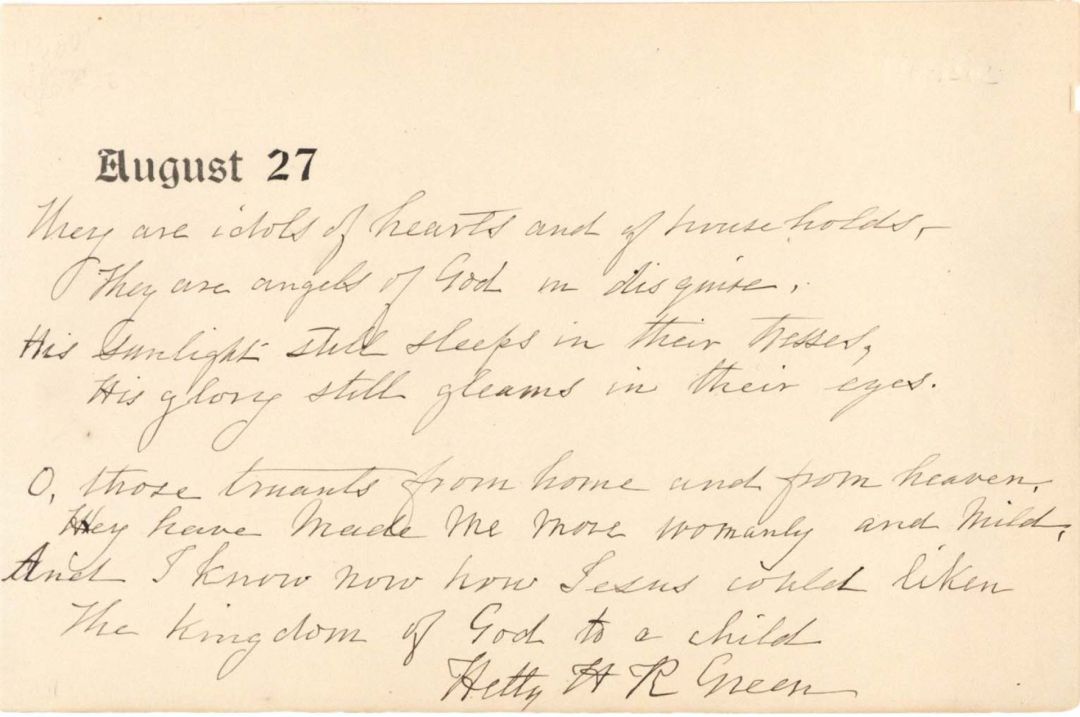 August 27
They are idols of hearts and of households,
They are angels of God in disguise,
His sunlight still sleeps in their tresses,
His glory still gleams in their eyes.
O, those truants from home and from heaven,
They have made me more womanly and mild,
And I know now how Jesus could liken
The Kingdom of God to a child
Hetty H R Green